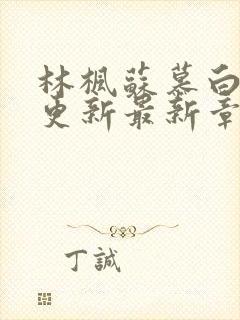 林楓蘇慕白
更新最新章
丁誠